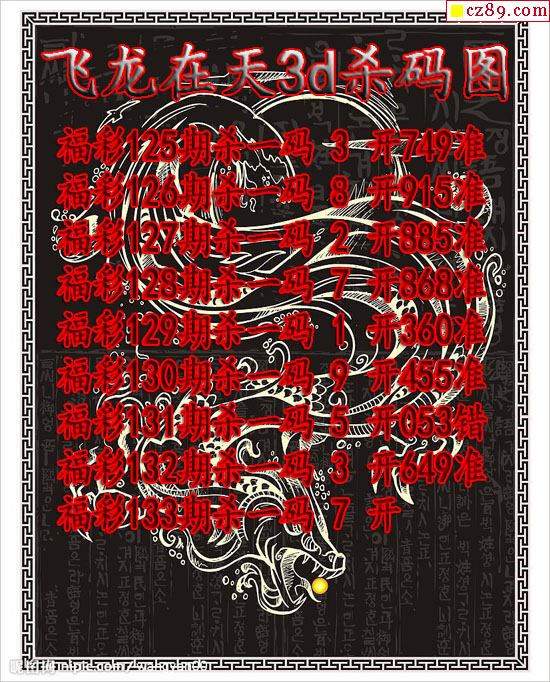 cz89.com
飞龙在天3d杀码图
福彩125期杀一码 3 开749准
福彩126期杀一码 8 开915准
福彩127期杀一码 2 开885准
福彩128期杀一码 7 开868准
福彩129期杀一码 1 开360准
福彩130期杀一码 9 开455准
福彩131期杀一码 5 开053错
福彩132期杀一码 3 开649准
福彩133期杀一码 7 开